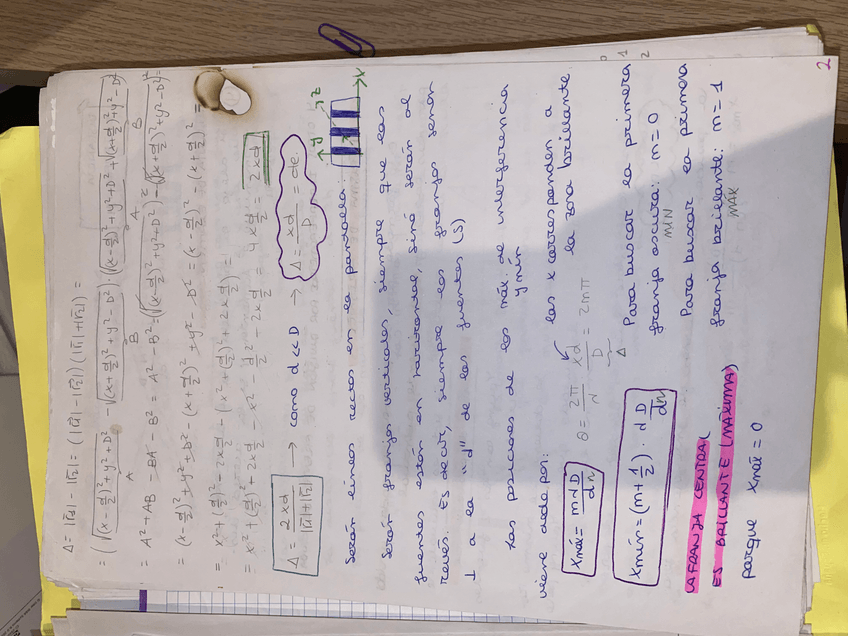 Δ = |r̄₁| - |r̄₂| = (|r̄₁| - |r̄₂|)(|r̄₁| + |r̄₂|) =
= (√((x-d/2)² + y² + D²) - √((x+d/2)² + y² - D²)) · (√((x-d/2)² + y² + D² + √(x+d/2)² + y² - D²)
A B A B
= A² + AB - BA - B² = A² - B² = (√(x-d/2)² + y² + D²)² - (√(x+d/2)² + y² - D²)² =
= (x-d/2)² + y² + D² - (x+d/2)² - y² - D² = (x-d/2)² - (x+d/2)² =
= x² + (d/2)² - 2x d/2 - (x² + (d/2)² + 2x d/2) =
= x² + (d/2)² + 2x d/2 - x² - d²/2 - 2x d/2 = 4x d/2 = 2xd
Δ = 2xd / (|r̄₁| + |r̄₂|) → como d << D → Δ = xd/D = de.
Serán líneas rectas en la pantalla:
y z x
Serán franjas verticales, siempre que las
fuentes estén en horizontal, sinó serán al
revés. Es decir, siempre las franjas serán
⊥ a la "d" de las fuentes (S)
Las posiciones de los máx. de interferencia
y mín
viene dada por: las x corresponden a
la zona brillante
xmáx = mλD/dn
θ = 2π/λ xd/D = 2mπ
Δ
xmín = (m + 1/2) · λD/dn
Para buscar la primera
franja oscura: m = 0
MIN
0 1 2
Para buscar la primera
franja brillante: m = 1
MÁX
LA FRANJA CENTRAL
ES BRILLANTE (MÁXIMA)
porque xmáx = 0
2